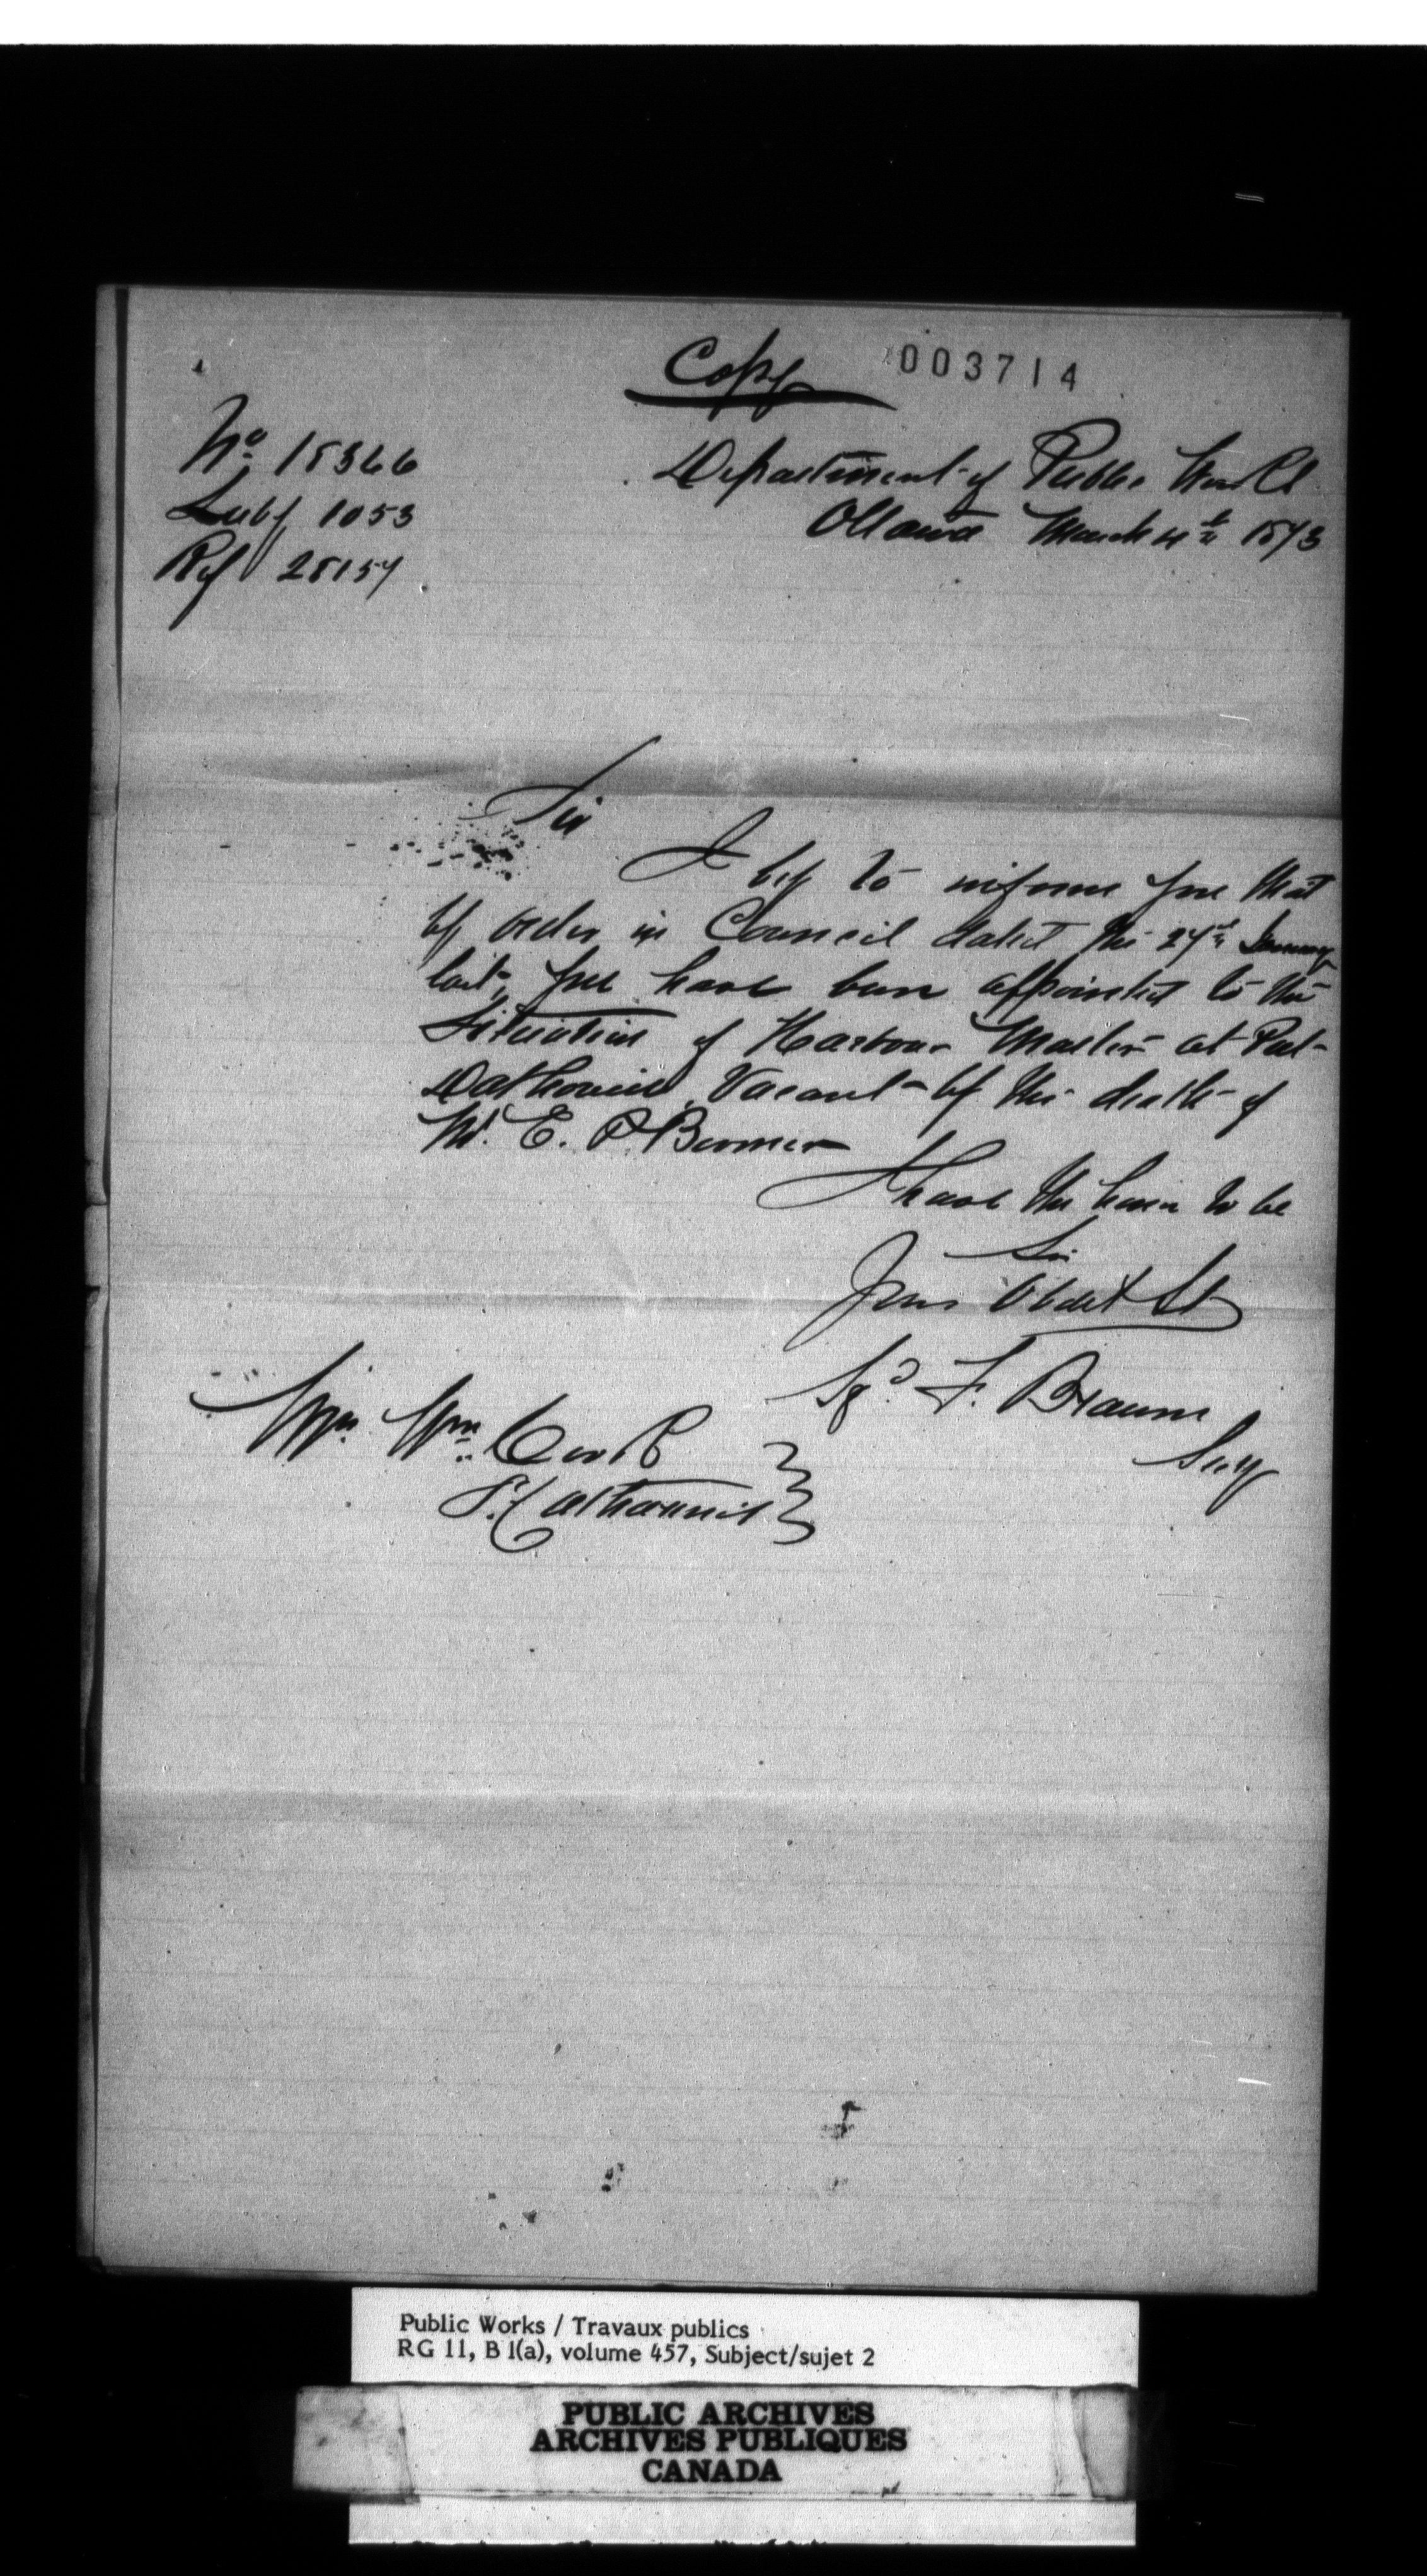 Copy
003714
No 18366
Subj 1053
Ref 28157
Department of Public Works
Ottawa March 4th 1873
Sir
I beg to inform you that
by order in Council dated the 27th January
last, you have been appointed to the
Situation of Harbour Master at Port
Dalhousie, Vacant by the death of
Mr. E. P. Bonner
I have the honor to be
Sir
Your Obdet St
Sgd. F. Braun
Secy
Wm. Cook
St. Catharines
Public Works / Travaux publics
RG 11, B 1(a), volume 457, Subject/sujet 2
PUBLIC ARCHIVES
ARCHIVES PUBLIQUES
CANADA